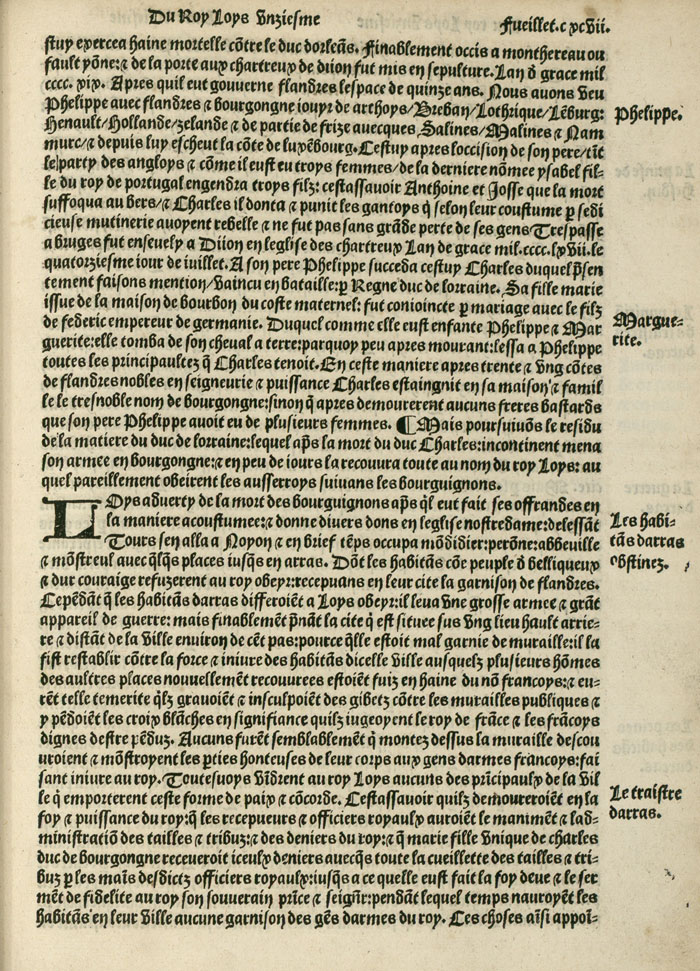 Du Roy Loys Vnziesme
Fueillet.c xcvii.
stuy exercea haine mortelle cōtre le duc dorleās. Finablement occis a monthereau ou
fault yōne: ⁊ de la porte aux chartreux de diion fut mis en sepulture. Lan d̄ grace mil
cccc. xix. Apres quil eut gouuerne flandres lespace de quinze ans. Nous auons veu
Phelippe auec flandres ⁊ bourgongne iouyr de arthoys/Breban/Lothrique/Lēburg:
Henault/Hollande/zelande ⁊ de partie de frize auecques Salines/Malines ⁊ Nam
murc/⁊ depuis luy escheut la cōte de luxēbourg. Cestuy apres loccision de son pere/tīt
le party des angloys ⁊ cōme il eust eu troys femmes/de la derniere nōmee ysabel fil-
le du roy de portugal engendra troys filz: cestassauoir Anthoine et Josse que la mort
suffoqua au bers/⁊ Charles il donta ⁊ punit les gantoys q̄ selon leur coustume ꝑ sedi
cieuse mutinerie auoyent rebelle ⁊ ne fut pas sans grāde perte de ses gens/Trespasse
a bruges fut enseuely a Diion en leglise des chartreux Lan de grace mil.cccc.lxvii.le
quatorziesme iour de iuillet. A son pere Phelippe succeda cestuy Charles duquel p̄sen
tement faisons mention/vaincu en bataille:ꝑ Regne duc de lorraine. Sa fille marie
issue de la maison de bourbon du coste maternel: fut conioincte ꝑ mariage auec le filz
de federic empereur de germanie. Duquel comme elle eust enfante Phelippe ⁊ Mar
guerite:elle tomba de son cheual a terre:parquoy peu apres mourant:lessa a Phelippe
toutes les principaultez q̄ Charles tenoit. En ceste maniere apres trente ⁊ vng cōtes
de flandres nobles en seigneurie ⁊ puissance Charles estaingnit en sa maison ⁊ famil
le le tresnoble nom de bourgongne:sinon q̄ apres demourerent aucuns freres bastards
que son pere Phelippe auoit eu de plusieurs femmes. ¶ Mais poursuiuōs le residu
de la matiere du duc de lorraine:lequel ap̄s la mort du duc Charles:incontinent mena
son armee en bourgongne:⁊ en peu de iours la recouura toute au nom du roy Loys: au
quel pareillement obeirent les ausserroys suiuans les bourguignons.
LOys aduerty de la mort des bourguignons ap̄s q̄l eut fait ses offrandes en
la maniere acoustumee:⁊ donne diuers dons en leglise nostredame:delessāt
Tours sen alla a Noyon ⁊ en brief tēps occupa mōdidier:perōne:abbeuille
⁊ mōstreul auec q̄lq̄s places iusq̄s en arras. Dōt les habitās cōe peuple d̄ belliqueux
⁊ dur couraige refuzerent au roy obeyr:recepuans en leur cite la garnison de flandres.
Cepēdāt q̄ les habitās darras differoiēt a Loys obeyr:il leua vne grosse armee ⁊ grāt
appareil de guerre: mais finablemēt p̄nāt la cite q̄ est situee sus vng lieu hault arrie-
re ⁊ distāt de la ville enuiron de cēt pas:pource q̄lle estoit mal garnie de muraille:il la
fist restablir cōtre la force ⁊ iniure des habitās dicelle ville ausquelz plusieurs hōmes
des aultres places nouuellemēt recouurees estoiēt fuiz en haine du nō francoys:⁊ eu-
rēt telle temerite q̄lz grauoiēt ⁊ insculpoiēt des gibetz cōtre les murailles publiques ⁊
y pēdoiēt les croix blāches en signifiance quilz iugeoyent le roy de frāce ⁊ les frācoys
dignes destre pēduz. Aucuns furēt semblablemēt q̄ montez dessus la muraille descou
uroient ⁊ mōstroyent les ꝑties honteuses de leur corps aux gens darmes francoys:fai
sant iniure au roy. Toutesuoys vīdrent au roy Loys aucuns des prīcipaulx de la vil
le q̄ emporterent ceste forme de paix ⁊ cōcorde. Cestassauoir quilz demoureroiēt en la
foy ⁊ puissance du roy:q̄ les recepueurs ⁊ officiers royaulx auroiēt le manimēt ⁊ lad-
ministratiō des tailles ⁊ tribuz:⁊ des deniers du roy:⁊ q̄ marie fille vnique de charles
duc de bourgongne receueroit iceulx deniers auecq̄s toute la cueillette des tailles ⁊ tri-
buz ꝑ les maīs desdictz officiers royaulx:iusq̄s a ce quelle eust fait la foy deue ⁊ le ser
mēt de fidelite au roy son souuerain prīce ⁊ seign̄r:pendāt lequel temps nauroyēt les
habitās en leur ville aucune garnison des gēs darmes du roy. Ces choses aīsi appoī-
Phelippe.
Margue-
rite.
Les habi-
tās darras
obstinez.
Le traistre
darras.